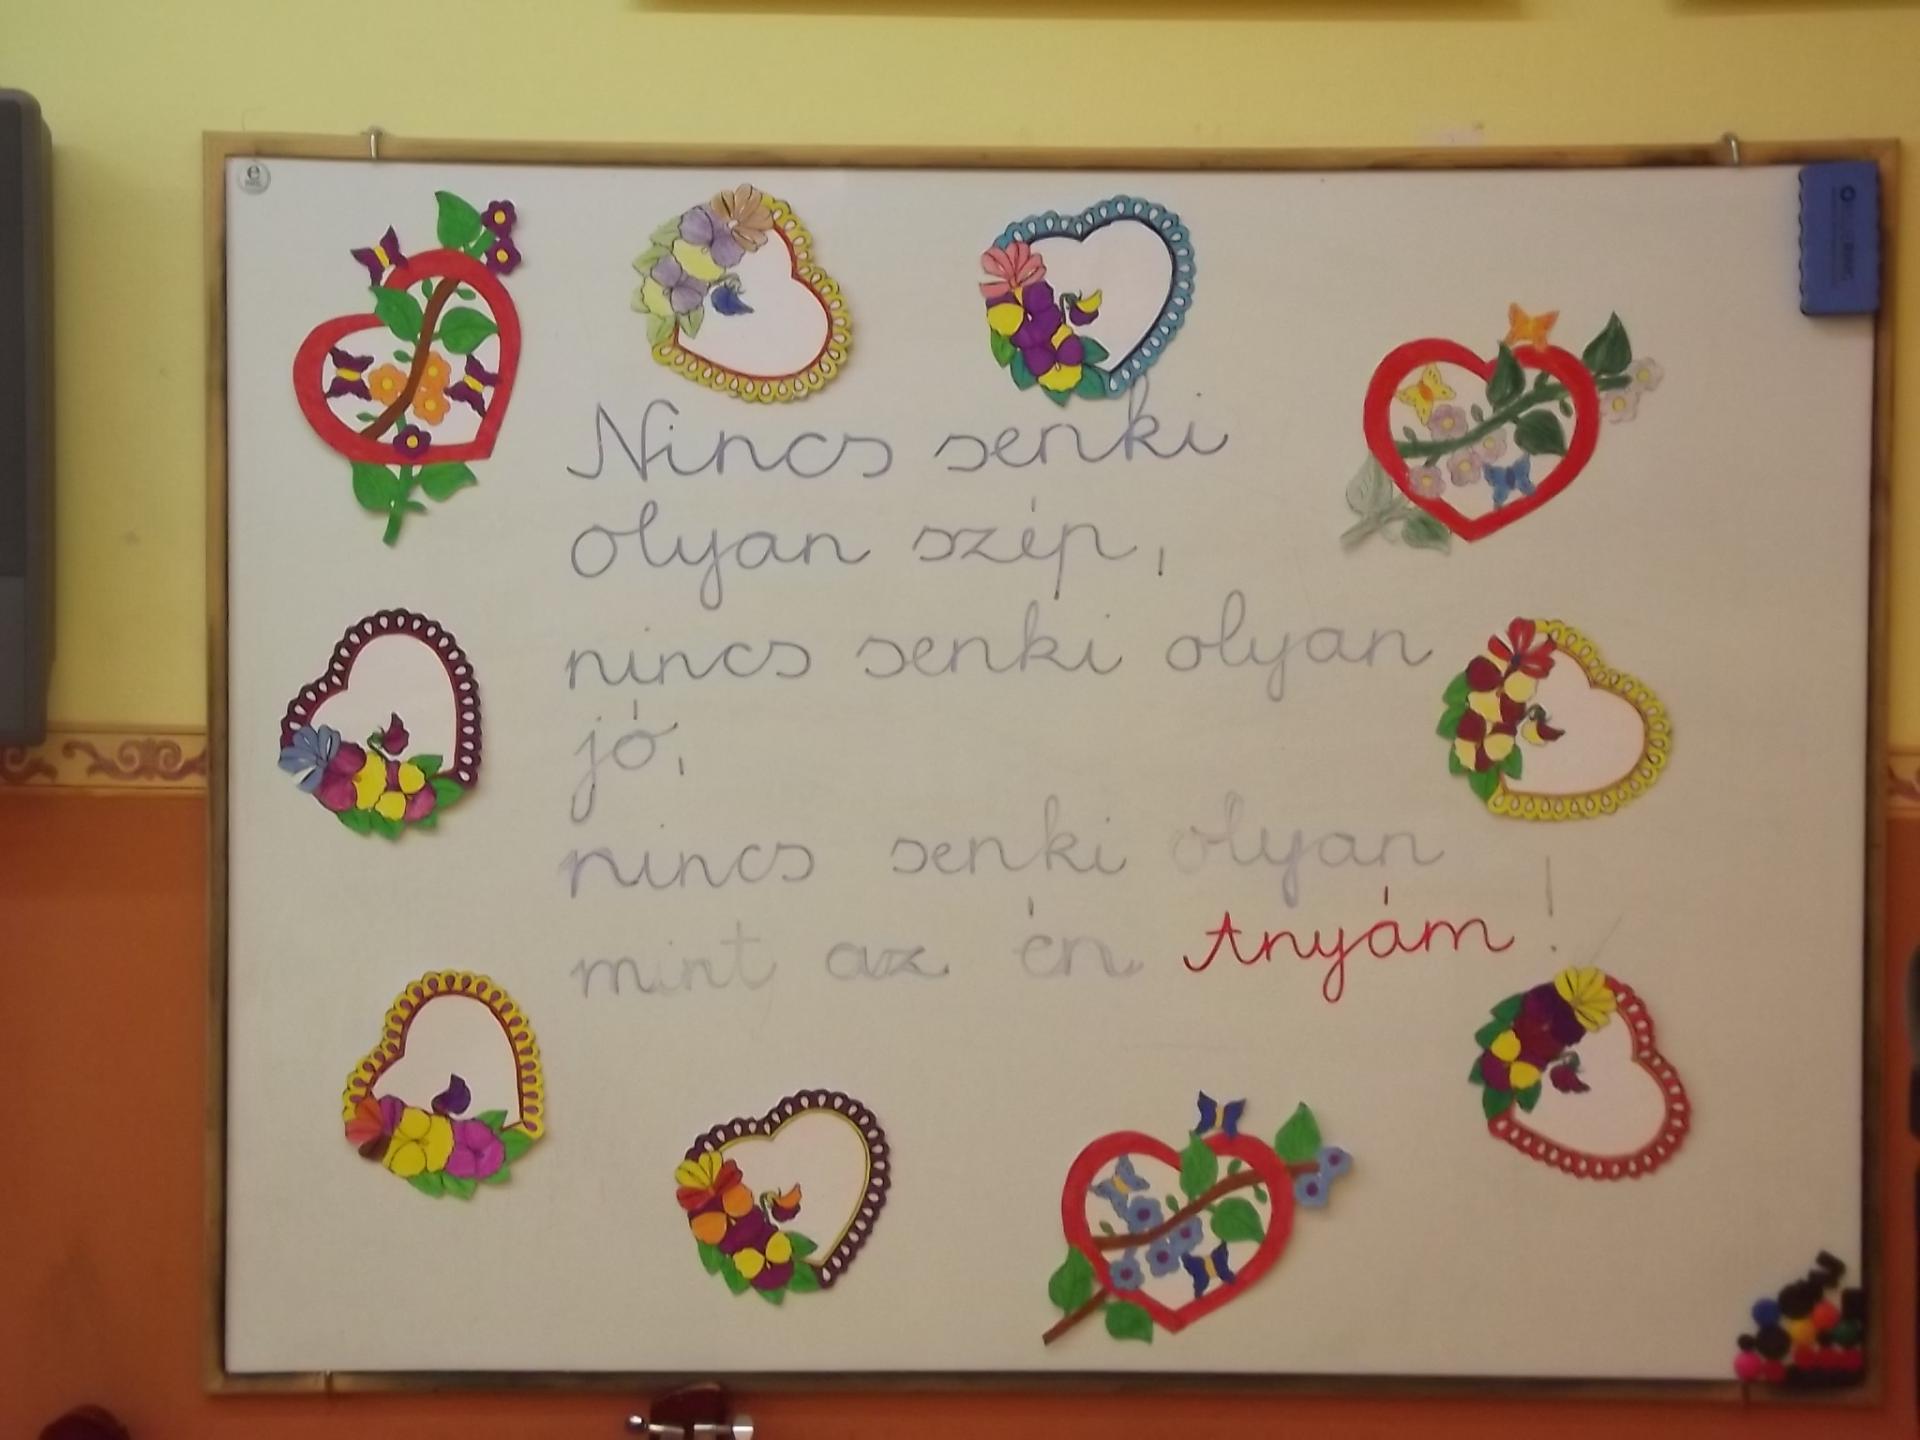 Nincs senki
olyan szép,
nincs senki olyan
jó,
nincs senki olyan
mint az én Anyám!